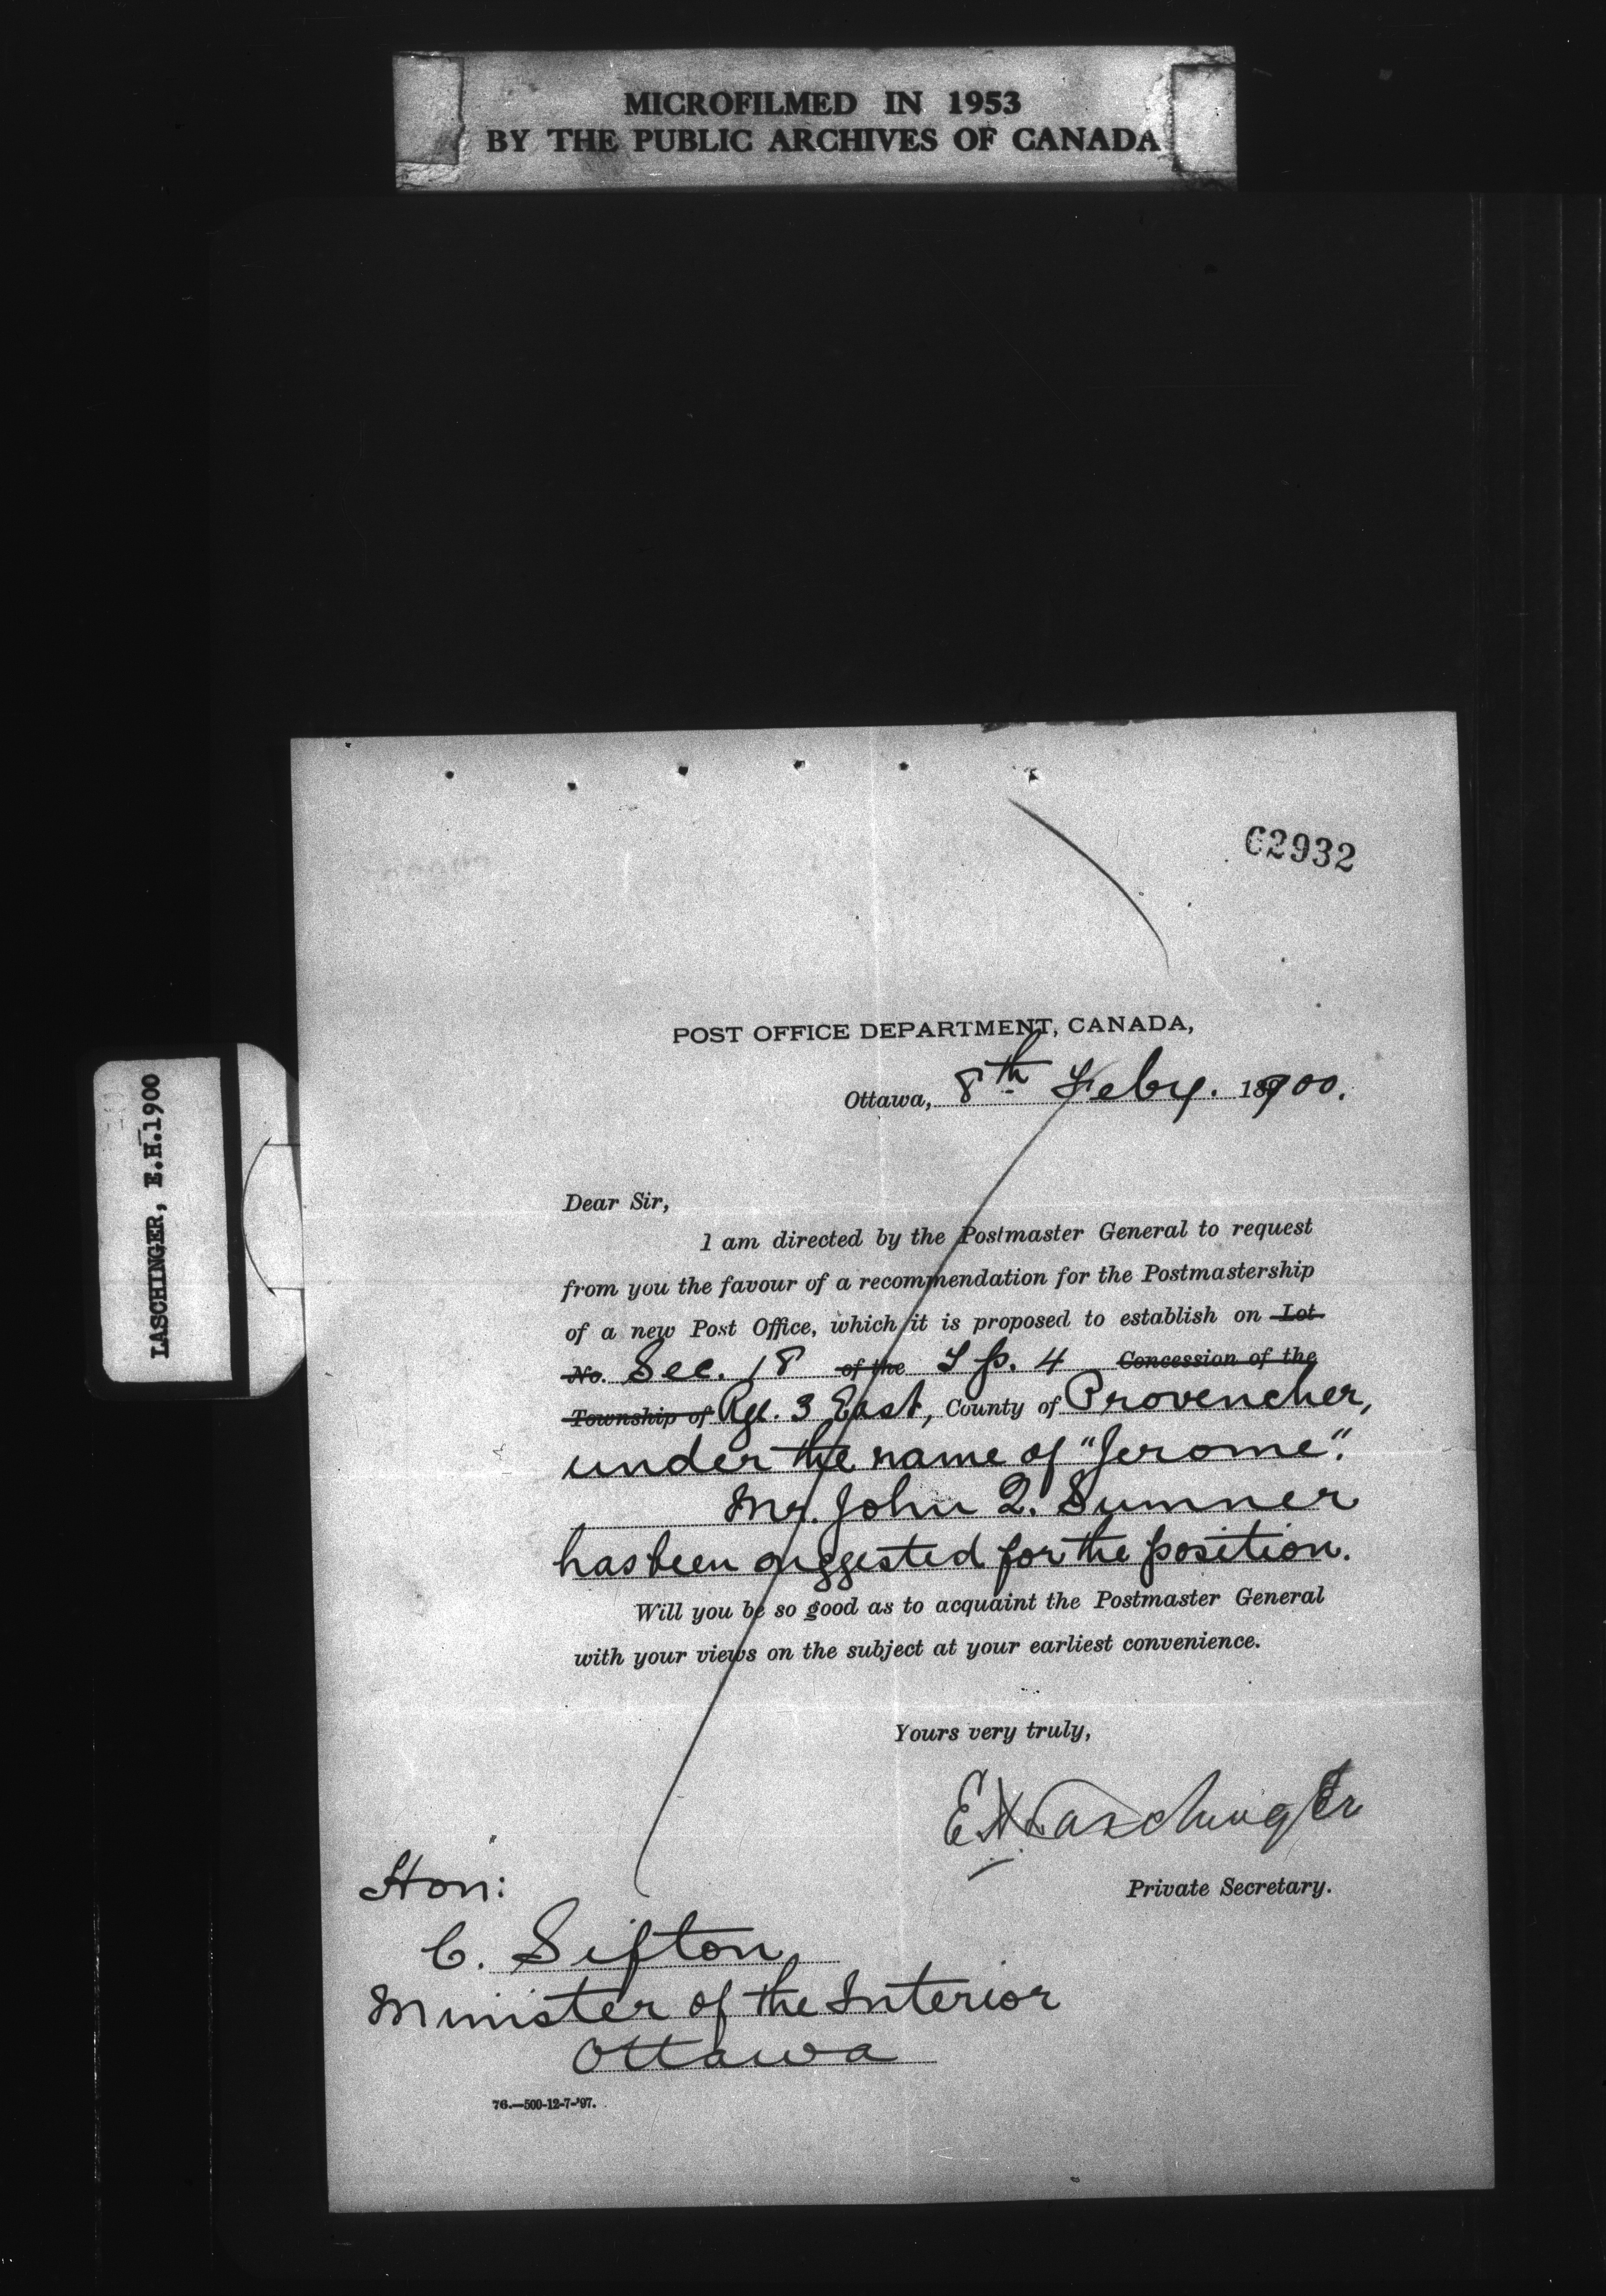 MICROFILMED IN 1953
BY THE PUBLIC ARCHIVES OF CANADA
LASCHINGER, E.H.1900
62932
POST OFFICE DEPARTMENT, CANADA,
Ottawa, 8th Feby. 1900.
Dear Sir,
I am directed by the Postmaster General to request
from you the favour of a recommendation for the Postmastership
of a new Post Office, which it is proposed to establish on Lot
No. Sec. 18 of the Tp. 4 Concession of the
Township of Rge. 3 East, County of Provencher,
under the name of "Jerome".
Mr. John Q. Sumner
has been suggested for the position.
Will you be so good as to acquaint the Postmaster General
with your views on the subject at your earliest convenience.
Yours very truly,
E H Laschinger
Private Secretary.
Hon:
C. Sifton
Minister of the Interior
Ottawa
76.—500-12-7-'97.